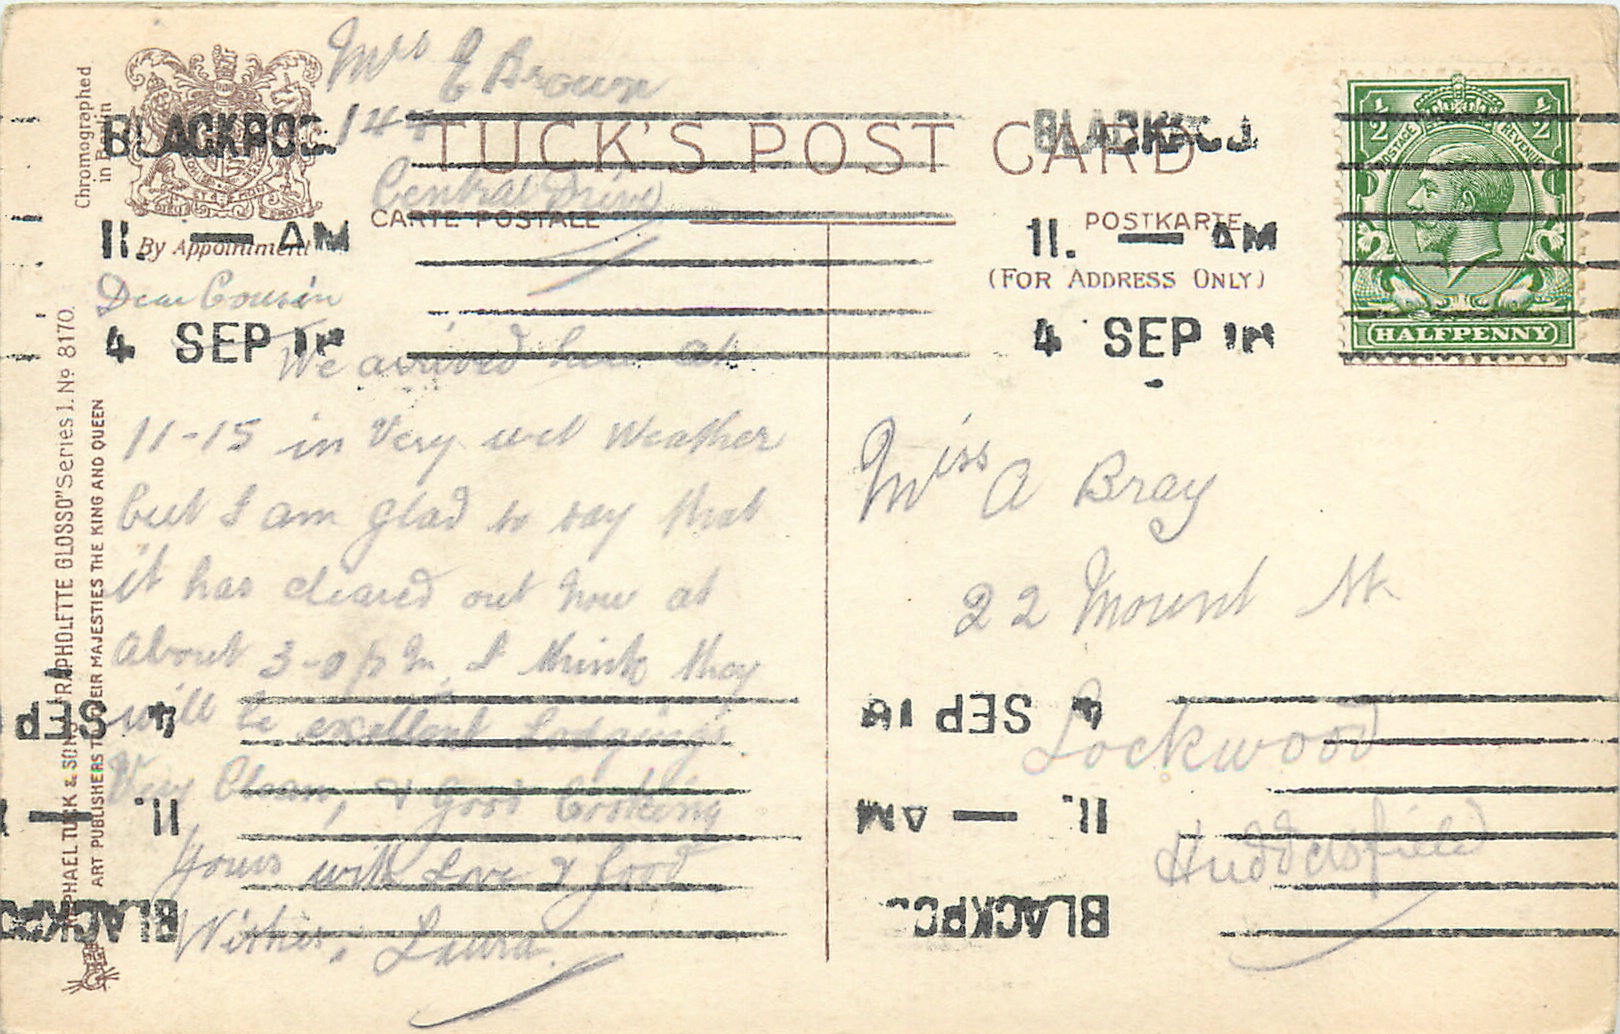 Mrs E Brown
144
Central Drive
TUCK'S POST CARD
CARTE POSTALE
POSTKARTE
(FOR ADDRESS ONLY)
Chromographed
in Berlin
By Appointment
BLACKPOOL
11. — AM
4 SEP
BLACKPOOL
11. — AM
4 SEP
HALFPENNY
POSTAGE
REVENUE
½
½
Dear Cousin
We arrived here at
11-15 in Very wet Weather
but I am glad to say that
it has cleared out now at
About 3-0 p m, I think they
will be excellent Lodgings.
Very Clean, & good Cooking
Yours with Love & Good
Wishes, Laura.
Miss A Bray
22 Mount St
Lockwood
Huddersfield
RAPHAEL TUCK & SONS' "RAPHOLETTE GLOSSO" Series I. No 8170.
ART PUBLISHERS TO THEIR MAJESTIES THE KING AND QUEEN
4 SEP
11. — AM
BLACKPOOL
4 SEP
11. — AM
BLACKPOOL